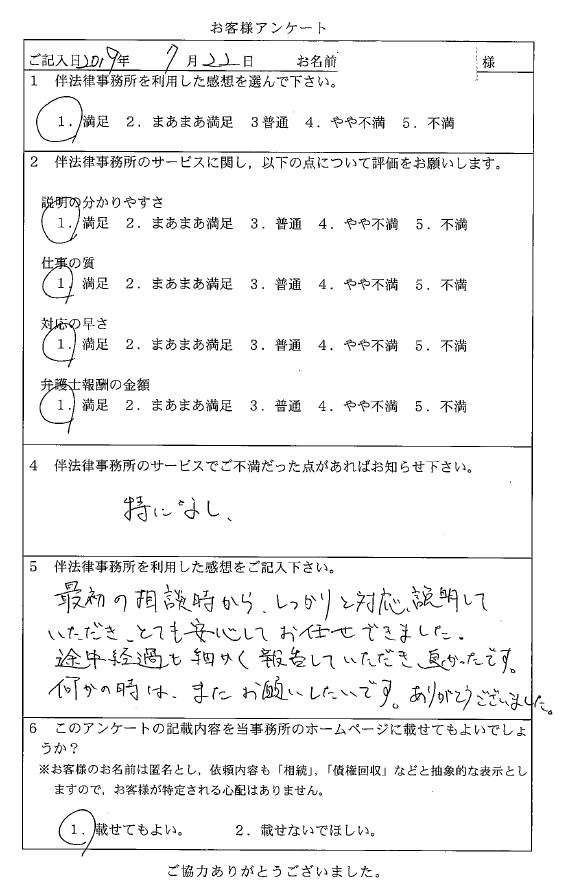 お客様アンケート
ご記入日2019年 7月22日 お名前 様
1 伴法律事務所を利用した感想を選んで下さい。
1. 満足 2. まあまあ満足 3普通 4. やや不満 5. 不満
2 伴法律事務所のサービスに関し，以下の点について評価をお願いします。
説明の分かりやすさ
1. 満足 2. まあまあ満足 3. 普通 4. やや不満 5. 不満
仕事の質
1. 満足 2. まあまあ満足 3. 普通 4. やや不満 5. 不満
対応の早さ
1. 満足 2. まあまあ満足 3. 普通 4. やや不満 5. 不満
弁護士報酬の金額
1. 満足 2. まあまあ満足 3. 普通 4. やや不満 5. 不満
4 伴法律事務所のサービスでご不満だった点があればお知らせ下さい。
特になし、
5 伴法律事務所を利用した感想をご記入下さい。
最初の相談時から、しっかりと対応、説明して
いただき、とても安心してお任せできました。
途中経過も細かく報告していただき、良かったです。
何かの時は、またお願いしたいです。ありがとうございました。
6 このアンケートの記載内容を当事務所のホームページに載せてもよいでしょ
うか？
※お客様のお名前は匿名とし，依頼内容も「相続」，「債権回収」などと抽象的な表示とし
ますので，お客様が特定される心配はありません。
1. 載せてもよい。 2. 載せないでほしい。
ご協力ありがとうございました。